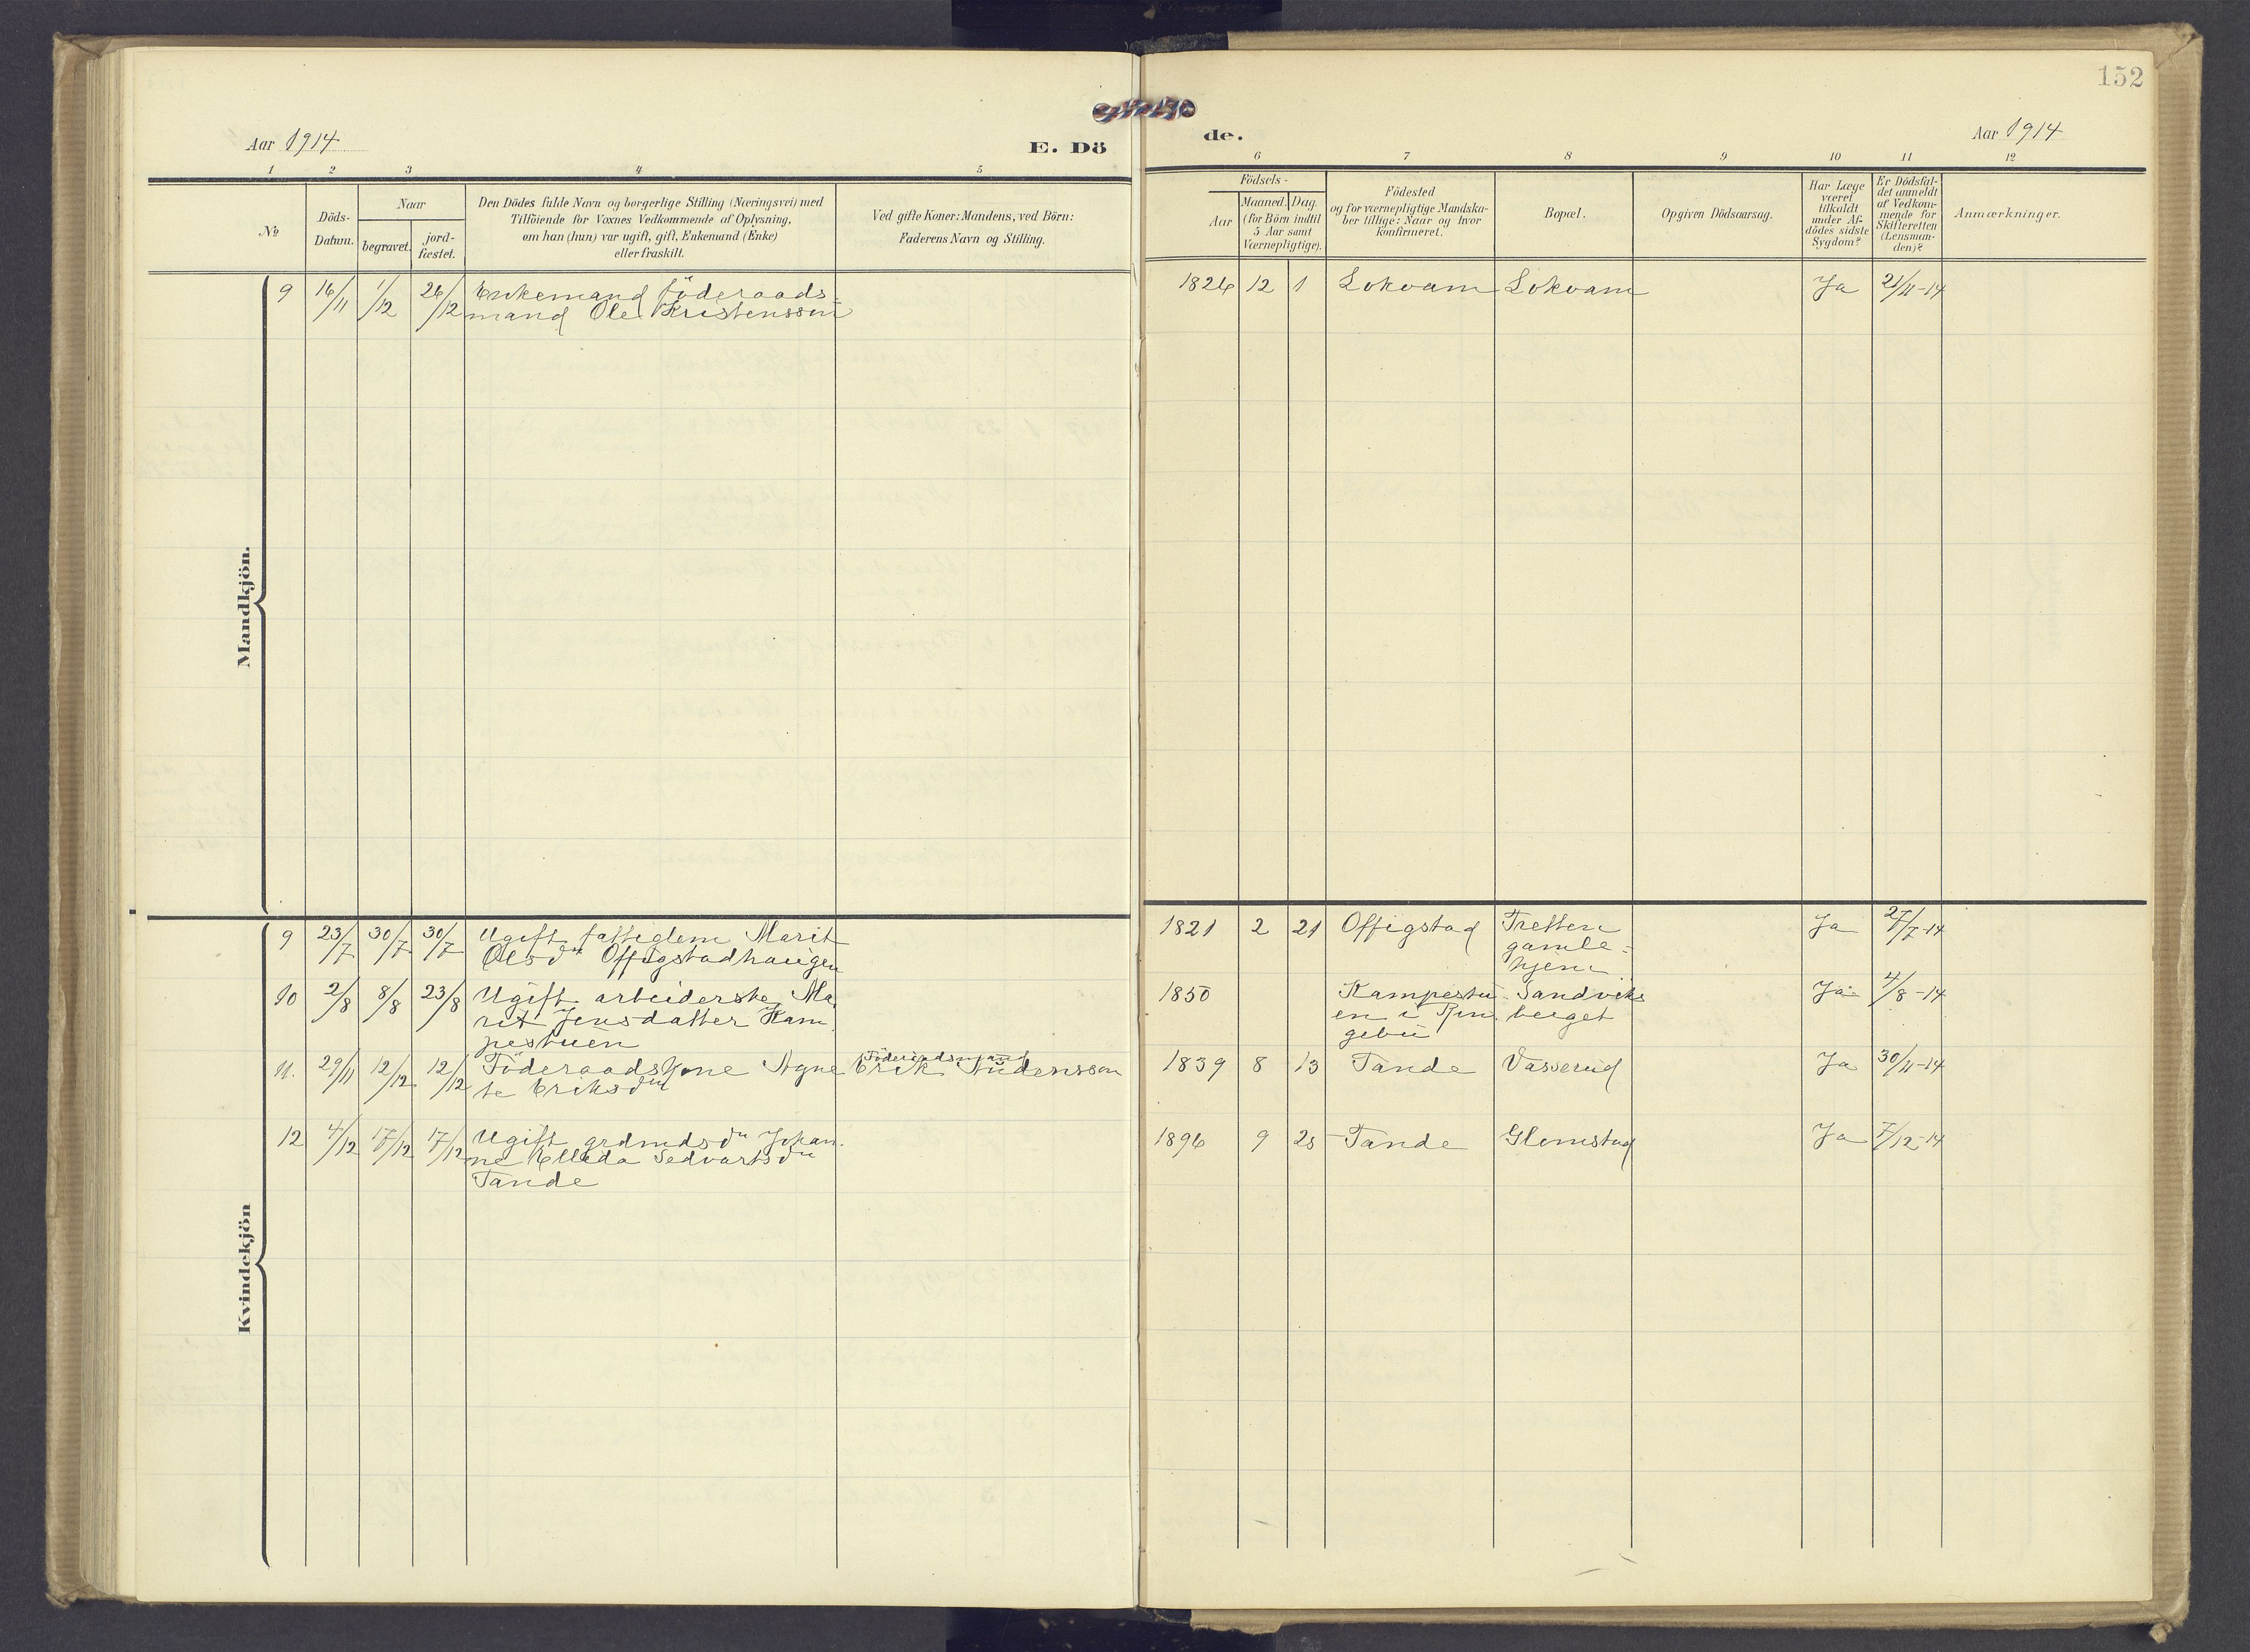 152
Aar 1914
E. Dö
de.
Aar 1914
1 2 3 4 5
6 7 8 9 10 11 12
No
Döds-
Datum.
Naar
begravet.
jord-
fæstet.
Den Dödes fulde Navn og borgerlige Stilling (Næringsvei) med
Tilföiende for Voxnes Vedkommende af Oplysning,
om han (hun) var ugift, gift, Enkemand (Enke)
eller fraskilt.
Ved gifte Koner: Mandens, ved Börn:
Faderens Navn og Stilling.
Födsels-
Aar
Maaned. Dag.
(for Börn indtil
5 Aar samt
Værnepligtige).
Födested
og for værnepligtige Mandska-
ber tillige: Naar og hvor
konfirmeret.
Bopæl.
Opgiven Dödsaarsag.
Har Læge
været
tilkaldt
under Af-
dödes sidste
Sygdom?
Er Dödsfal-
det anmeldt
af Vedkom-
mende for
Skifteretten
(Lensman-
den)?
Anmærkninger.
Mandkjön.
9 16/11 1/12 26/12 Enkemand föderaads-
mand Ole Kristensson
1826 12 1 Lokvam Lokvam Ja 21/11-14
Kvindekjön
9 23/7 30/7 30/7 Ugift fattiglem Marit
Olsdtr Offigstadhaugen
1821 2 21 Offigstad Tretten
gamle=
hjem
Ja 27/7-14
10 2/8 8/8 23/8 Ugift arbeiderske Ma-
rit Jensdatter Kam-
pestuen
1850 Kampestu-
en i Rin-
gebu
Sandviks
berget
Ja 4/8-14
11. 29/11 12/12 12/12 Föderaadskone Agne
te Eriksdtr
Föderaadsmand
Erik Audensson
1839 8 13 Tande Vasserud Ja 30/11-14
12 4/12 17/12 17/12 Ugift grdmdsdtr Johan-
ne Elleda Sedvartsdtr
Tande
1896 9 25 Tande Glomstad Ja 7/12-14